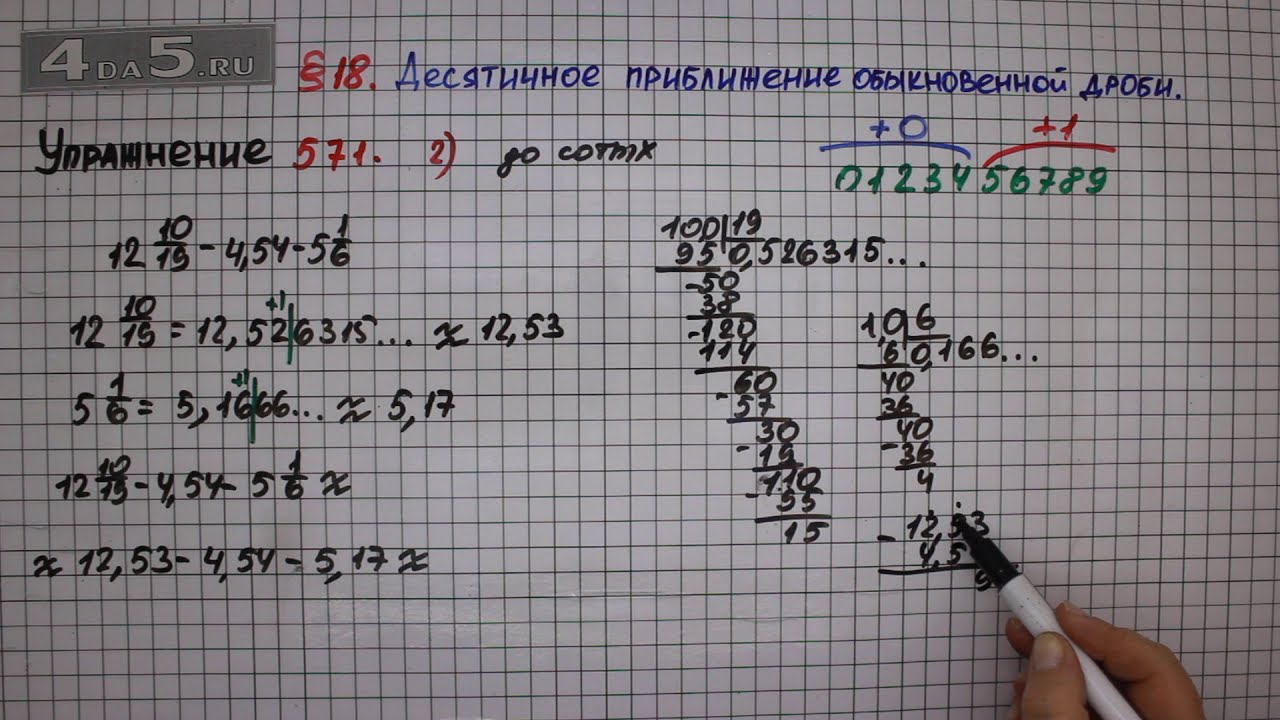 4DA5.RU
§ 18. Десятичное приближение обыкновенной дроби.
Упражнение 571. 2) до сотых
+0 +1
0 1 2 3 4 5 6 7 8 9
12 10/19 - 4,54 - 5 1/6
+1
12 10/19 = 12,52|6315... ≈ 12,53
+1
5 1/6 = 5,16|66... ≈ 5,17
12 10/19 - 4,54 - 5 1/6 ≈
≈ 12,53 - 4,54 - 5,17 ≈
100|19
95 0,526315...
-50
38
-120
114
-60
57
-30
19
-110
95
15
1,0|6
6 0,166...
40
36
-40
36
4
-12,53
4,5
9